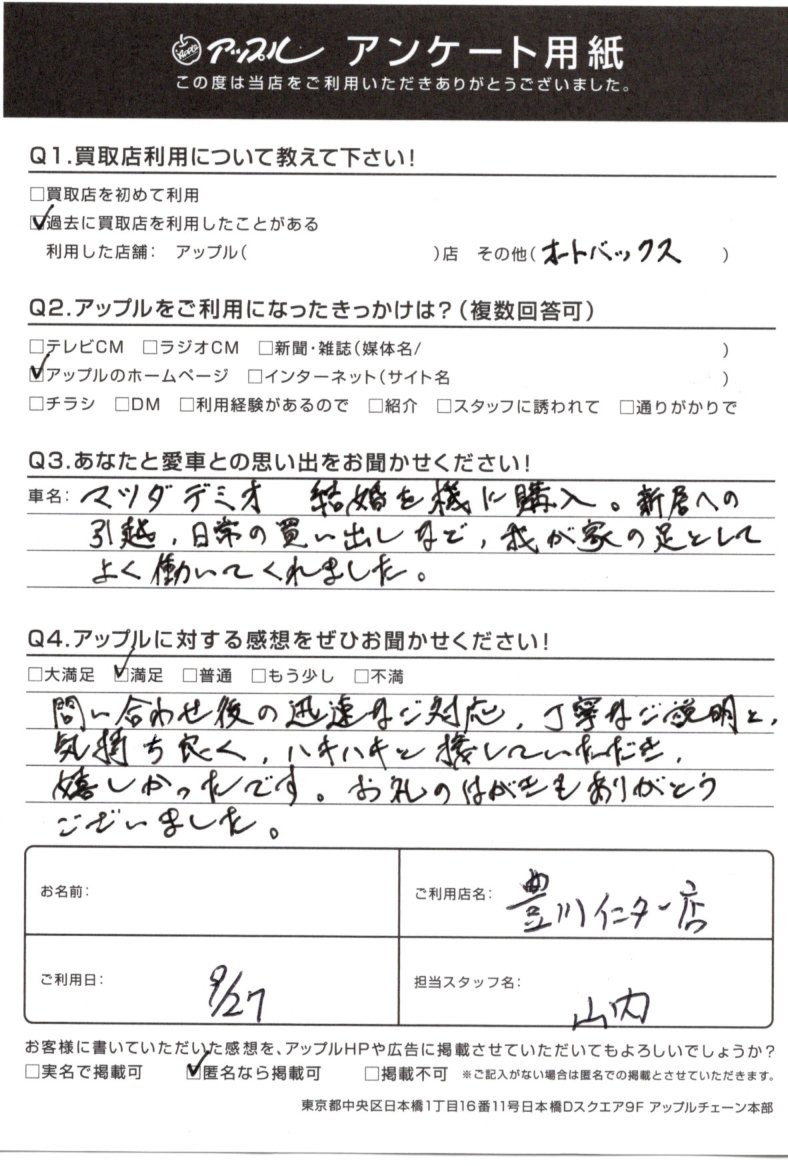 Apple アップル アンケート用紙
この度は当店をご利用いただきありがとうございました。
Q1.買取店利用について教えて下さい!
□買取店を初めて利用
☑過去に買取店を利用したことがある
利用した店舗: アップル( )店 その他(オートバックス )
Q2.アップルをご利用になったきっかけは?(複数回答可)
□テレビCM □ラジオCM □新聞・雑誌(媒体名/ )
☑アップルのホームページ □インターネット(サイト名 )
□チラシ □DM □利用経験があるので □紹介 □スタッフに誘われて □通りがかりで
Q3.あなたと愛車との思い出をお聞かせください!
車名: マツダデミオ 結婚を機に購入。新居への
引越,日常の買い出しなど,我が家の足として
よく働いてくれました。
Q4.アップルに対する感想をぜひお聞かせください!
□大満足 ☑満足 □普通 □もう少し □不満
問い合わせ後の迅速なご対応,丁寧なご説明と,
気持ち良く,ハキハキと接していただき,
嬉しかったです。お礼のはがきもありがとう
ございました。
お名前:
ご利用店名: 豊川インター店
ご利用日: 9/27
担当スタッフ名: 山内
お客様に書いていただいた感想を、アップルHPや広告に掲載させていただいてもよろしいでしょうか?
□実名で掲載可 ☑匿名なら掲載可 □掲載不可 ※ご記入がない場合は匿名での掲載とさせていただきます。
東京都中央区日本橋1丁目16番11号日本橋Dスクエア9F アップルチェーン本部